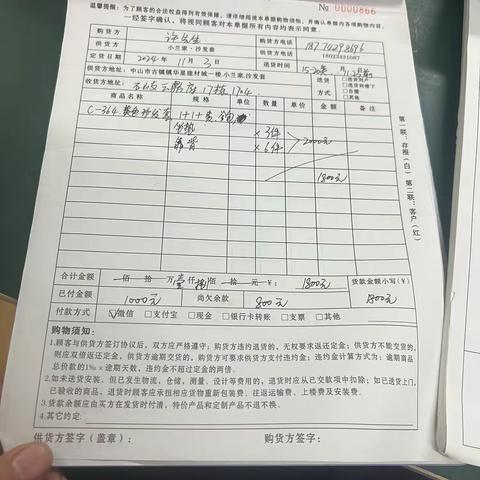 № 0000866
温馨提醒：为了顾客的合法权益得到有效保障，请详细阅读本单据购物须知，并确认单据内各项购物内容，
一经签字确认，将视同顾客对本单据所有内容均表示同意。
购货方 许先生 购货方电话 18770298696
供货方 小兰家·沙发套 供货方电话 18023431687
定货日期 2024年 11月 3日 送货时间 15-20天
供货方地址 中山市古镇镇华星建材城一楼小兰家.沙发套 送货方式 □送货 □送货到楼下 □自提 □其他
收货方地址 17栋1704
商品名称 规格 单位 数量 单价 金额 备注
C-364 黄色沙发套 1+1+贵
坐垫 × 3件 2000元
靠背 × 6件
1800元
第一联：存根（白） 第二联：客户（红）
合计金额 佰 拾 万 壹 仟 捌 佰 拾 元 ¥： 1800元 货款金额小写(¥)
已付金额 1000元 尚欠余款 800元 1800元
付款方式 ☑微信 □支付宝 □现金 □银行卡转账 □支票 □其他
购物须知：
1.顾客与供货方签订协议后，双方应严格遵守；购货方违约退货的，无权要求返还定金；供货方不能交货的，
则应双倍返还定金，供货方逾期交货的，购货方可要求供货方支付违约金；违约金计算方式为：逾期商品
总价款的1‰×逾期天数，违约金不超过定金的两倍。
2.如未送货安装，但已发生物流，仓储、测量、设计等费用的，退货时应从已交款项中扣除；如已送货上门，
已验收的商品，退货时顾客应承担相应货物重新包装费、往返运输费、上楼费及安装费。
3.货款余额应由买方在发货时付清，特价产品和定制产品不退不换。
4.其它约定：
供货方签字（盖章）： 购货方签字：